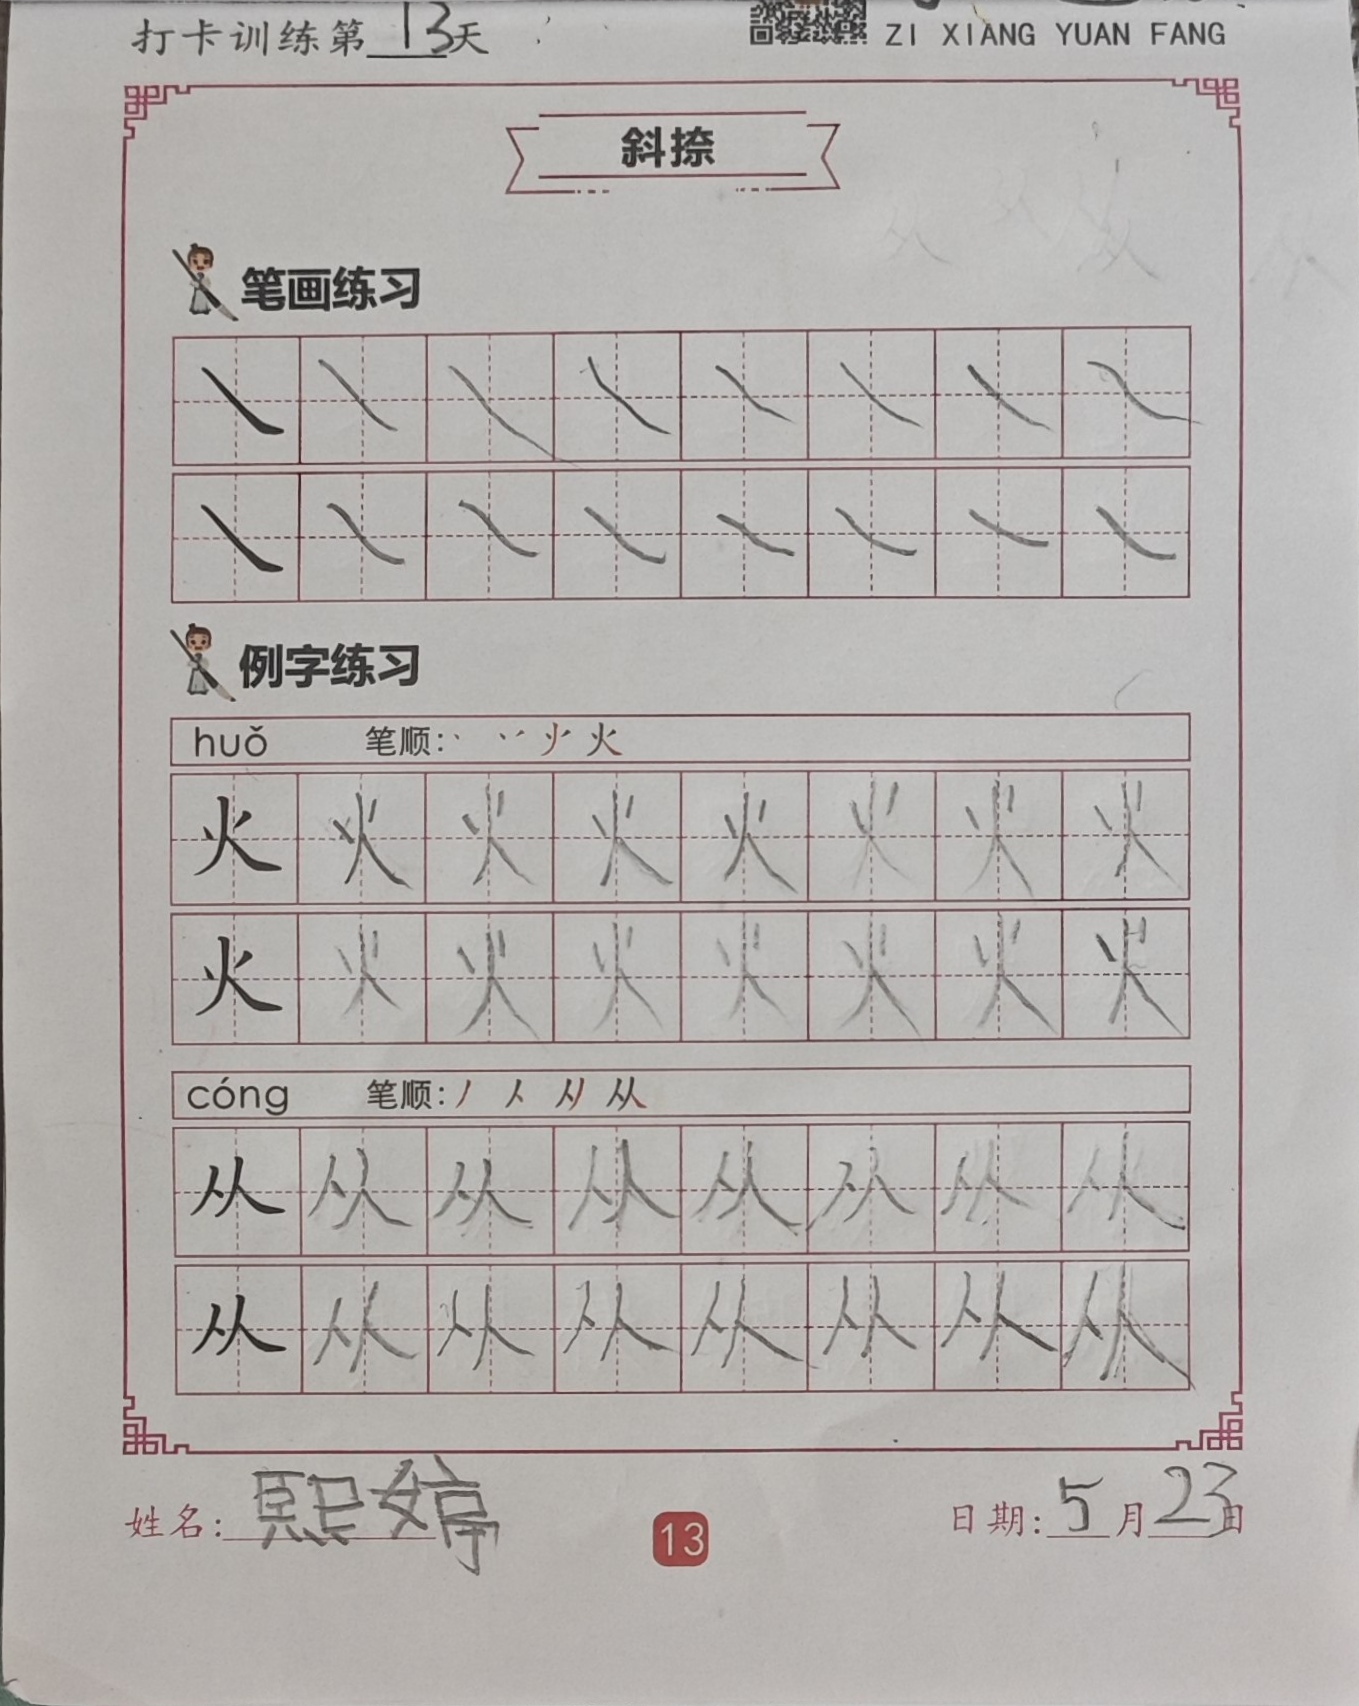 打卡训练第13天
ZI XIANG YUAN FANG
斜捺
笔画练习
例字练习
huǒ 笔顺: 火
火 火 火 火 火 火 火 火
火 火 火 火 火 火 火 火
cóng 笔顺: 丿 人 从
从 从 从 从 从 从 从 从
从 从 从 从 从 从 从 从
姓名: 熙婷
13
日期: 5月23日